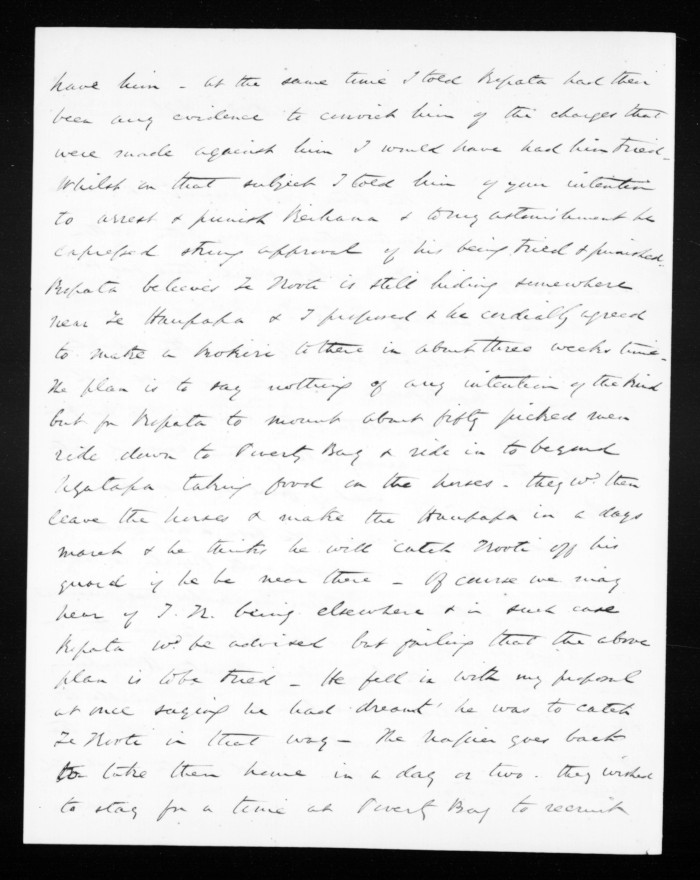 have him - at the same time I told Ropata had their
been any evidence to convict him of the charges that
were made against him I would have had him tried -
Whilst on that subject I told him of your intention
to arrest & punish Keihana & to my astonishment he
expressed strong approval of his being tried & punished -
Ropata believes Te Kooti is still hiding somewhere
near Te Haupapa & I proposed & he cordially agreed
to make a Kokiri to there in about three weeks time -
The plan is to say nothing of any intention of the kind
but for Ropata to mount about fifty picked men
ride down to Poverty Bay & ride in to beyond
Ngatapa taking food on the horses - they wd. then
leave the horses & make the Haupapa in a days
march & he thinks he will catch Kooti off his
guard if he be near there - Of course we may
hear of T. K. being elsewhere & in such case
Ropata wd. be advised but failing that the above
plan is to be tried - He fell in with my proposal
at once saying he had dreamt he was to catch
Te Kooti in that way - The Napier goes back
to take them home in a day or two. they wished
to stay for a time at Poverty Bay to recruit